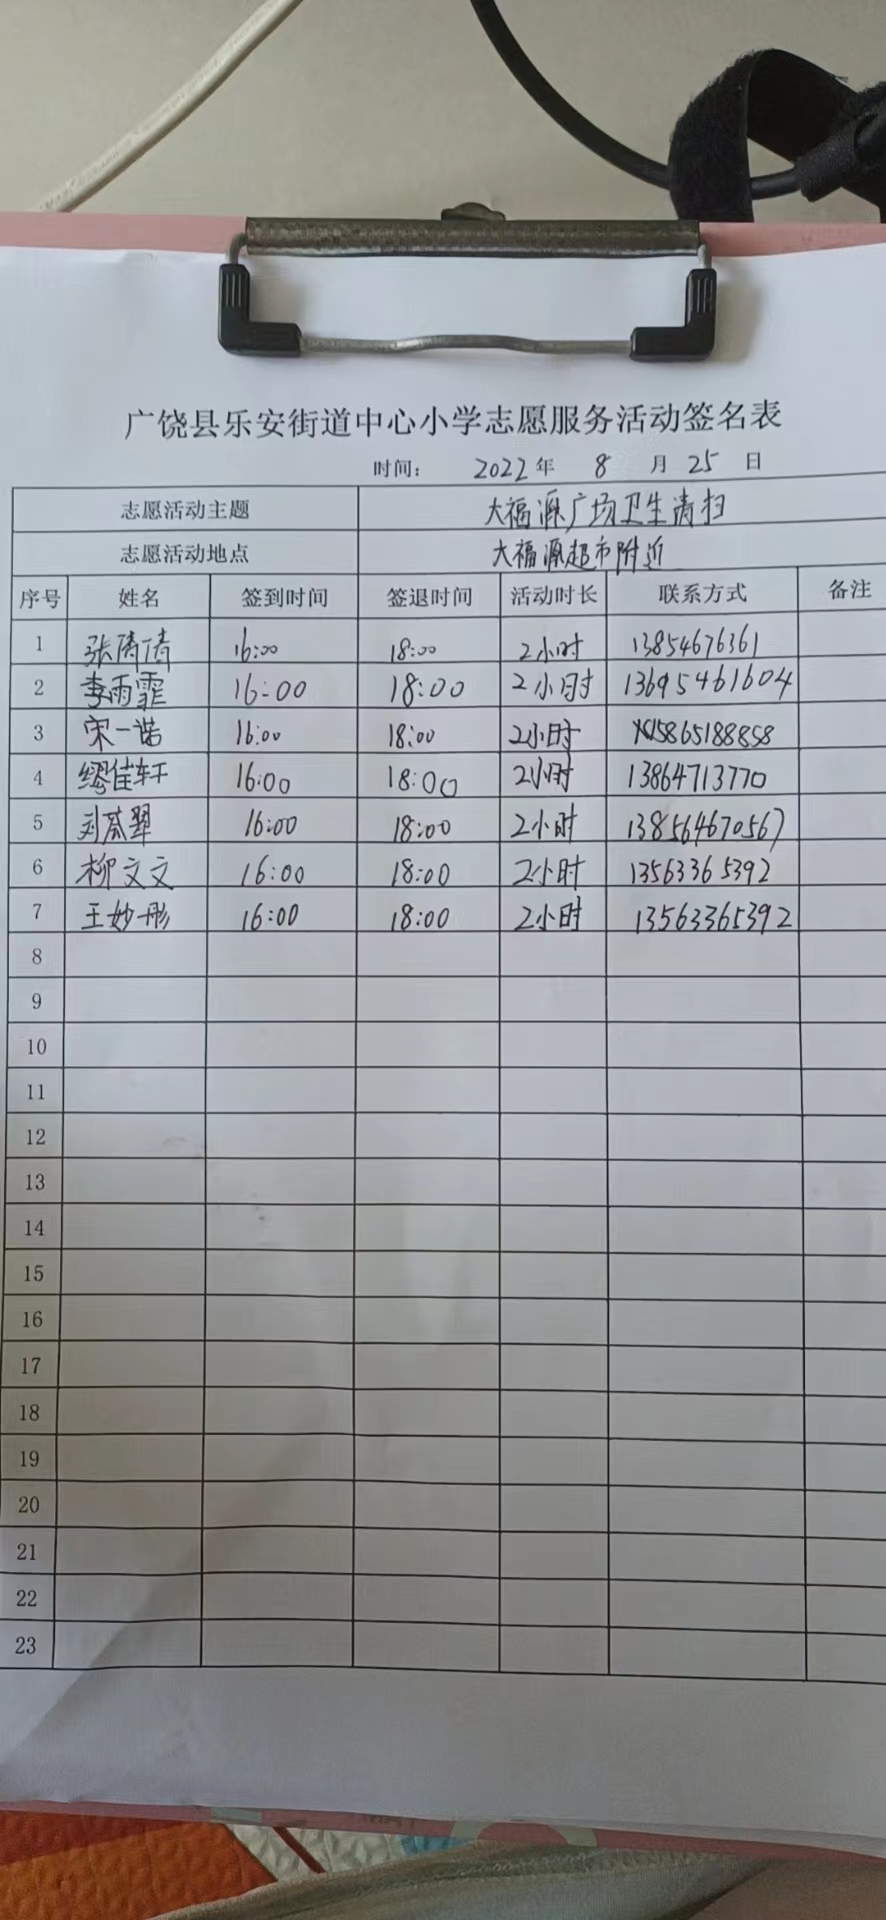 广饶县乐安街道中心小学志愿服务活动签名表
时间： 2022 年 8 月 25 日
志愿活动主题 大福源广场卫生清扫
志愿活动地点 大福源超市附近
序号 姓名 签到时间 签退时间 活动时长 联系方式 备注
1 张倩倩 16:00 18:00 2小时 13854676361
2 李雨霏 16:00 18:00 2小时 13695461604
3 宋一诺 16:00 18:00 2小时 15865188858
4 缪佳轩 16:00 18:00 2小时 13864713770
5 刘 翠 16:00 18:00 2小时 138564670567
6 柳文文 16:00 18:00 2小时 13563365392
7 王妙彤 16:00 18:00 2小时 13563365392
8
9
10
11
12
13
14
15
16
17
18
19
20
21
22
23